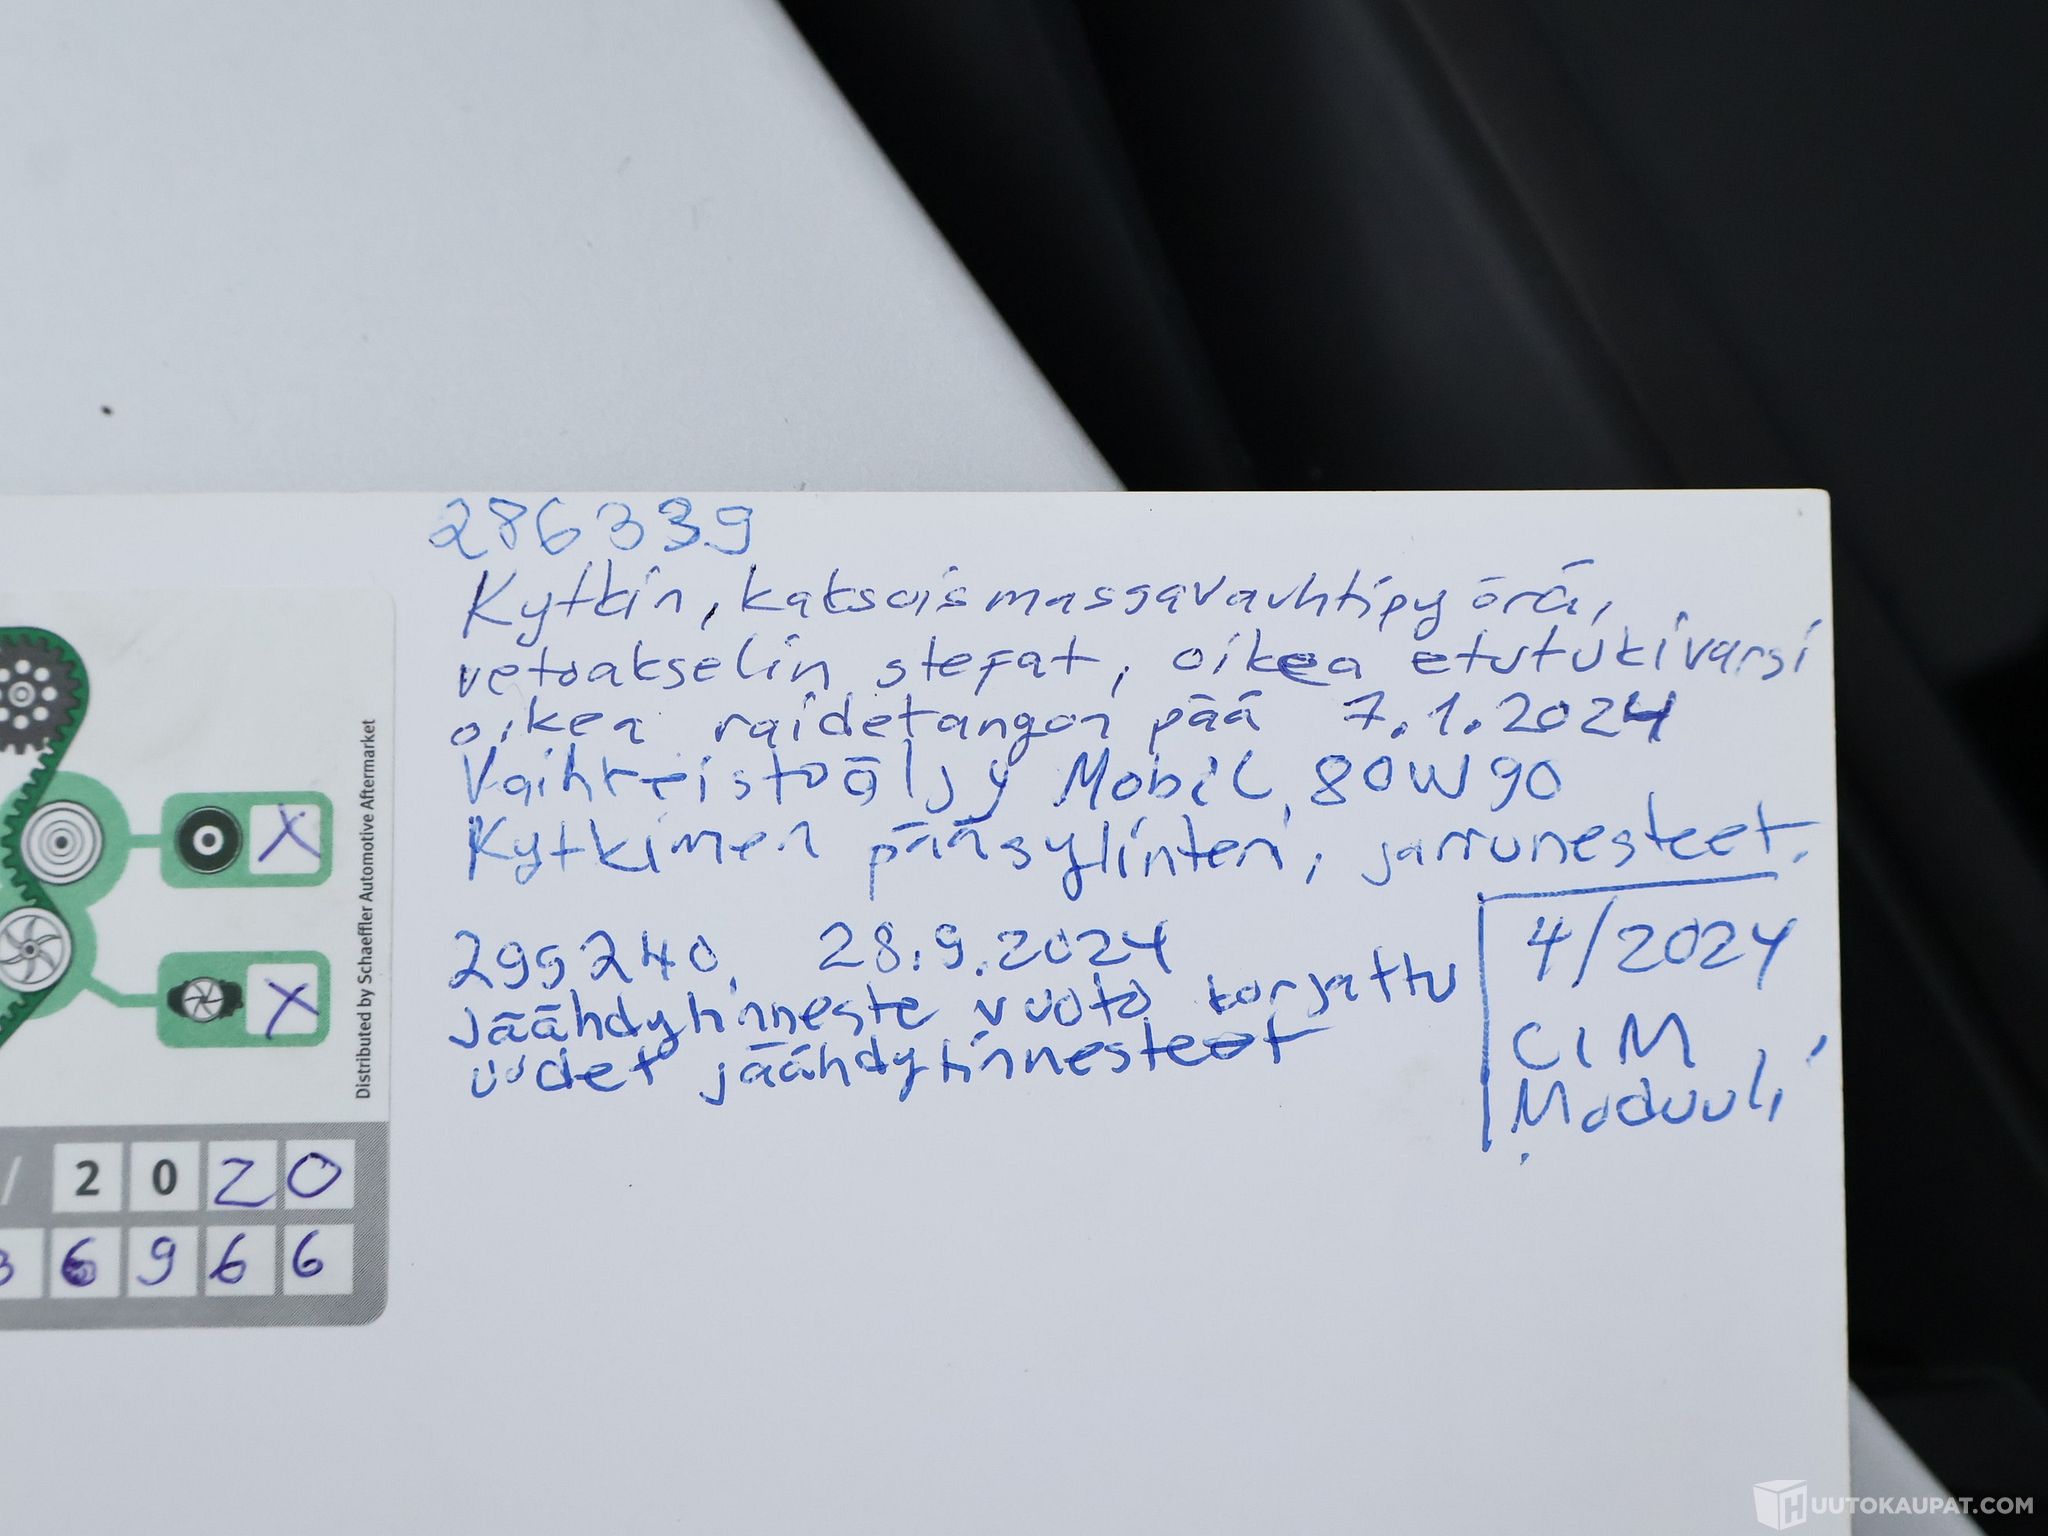 286339
Kytkin, kaksoismassavauhtipyörä,
vetoakselin stefat, oikea etutukivarsi
oikea raidetangon pää 7.1.2024
Vaihteistoöljy Mobil 80W90
Kytkimen pääsylinteri, jarrunesteet.
299240 28.9.2024
Jäähdytinneste vuoto korjattu
uudet jäähdytinnesteet
4/2024
CIM
Moduuli
Distributed by Schaeffler Automotive Aftermarket
X
X
/ 2020
36966
HUUTOKAUPAT.COM